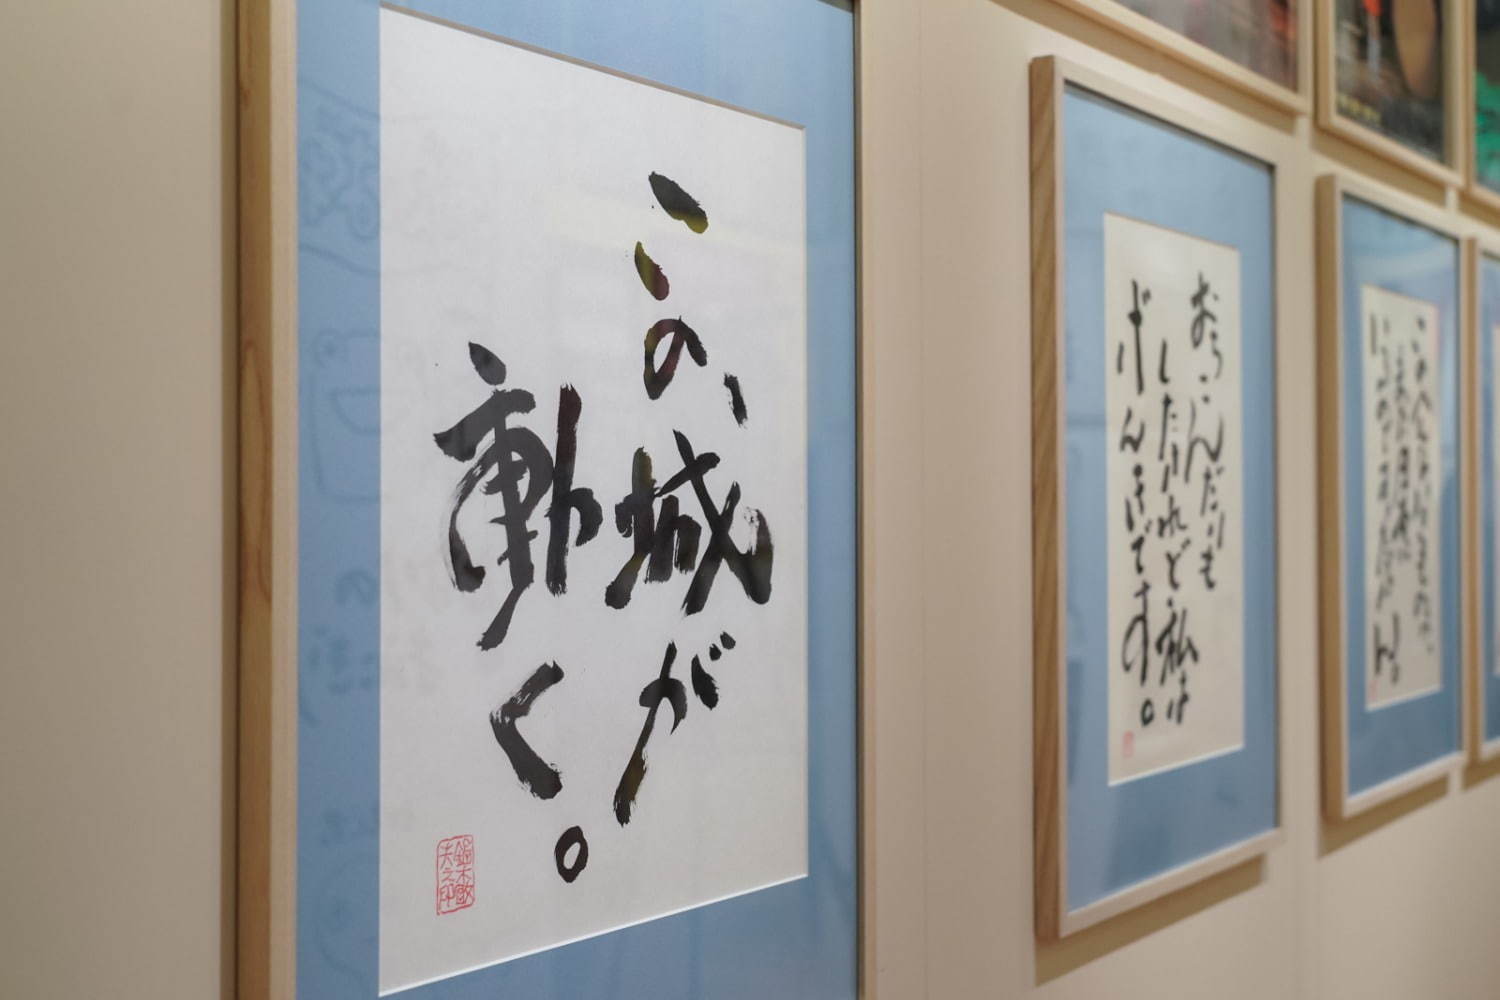 この、城が
動く。
鈴木敏
夫之印
おちこんだりも
したけれど私は
げんきです。